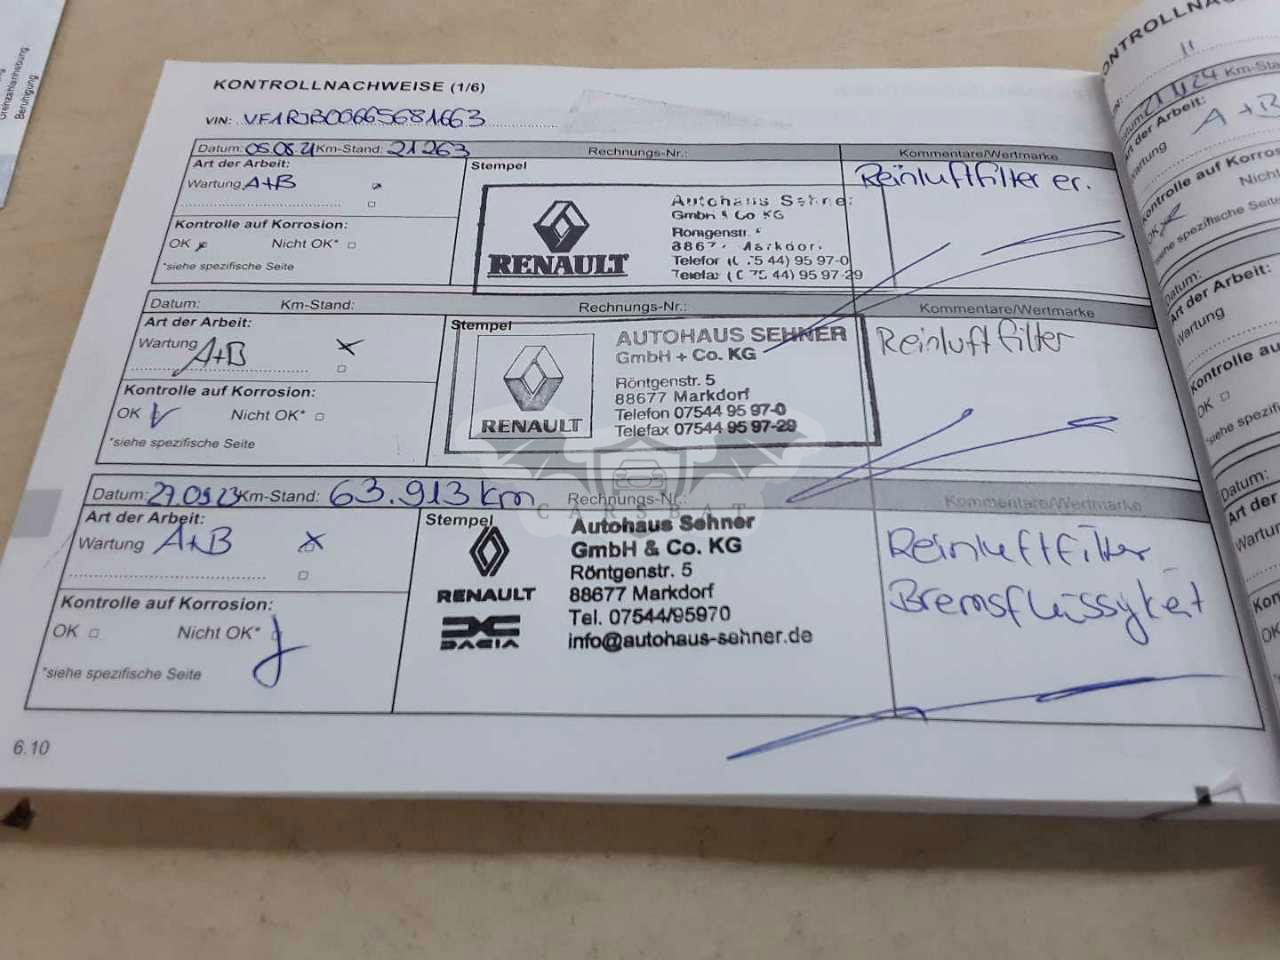 KONTROLLNACHWEISE (1/6)
VIN: VF1RJB00665681663
Datum: 05.08.21 Km-Stand: 21263 Rechnungs-Nr.: Kommentare/Wertmarke
Art der Arbeit:
Wartung A+B
Kontrolle auf Korrosion:
OK Nicht OK*
*siehe spezifische Seite
Stempel
RENAULT
Autohaus Sehner
GmbH & Co KG
Röntgenstr.
8867 Markdor.
Telefon 75 44) 95 97-0
Telefax 75 44) 95 97-29
Reinluftfilter er.
Datum: Km-Stand: Rechnungs-Nr.: Kommentare/Wertmarke
Art der Arbeit:
Wartung A+B
Kontrolle auf Korrosion:
OK Nicht OK*
*siehe spezifische Seite
Stempel
RENAULT
AUTOHAUS SEHNER
GmbH + Co. KG
Röntgenstr. 5
88677 Markdorf
Telefon 07544 95 97-0
Telefax 07544 95 97-29
Reinluftfilter
Datum: 27.09.23 Km-Stand: 63.913 km Rechnungs-Nr.: Kommentare/Wertmarke
Art der Arbeit:
Wartung A+B
Kontrolle auf Korrosion:
OK Nicht OK*
*siehe spezifische Seite
Stempel
RENAULT
DACIA
Autohaus Sehner
GmbH & Co. KG
Röntgenstr. 5
88677 Markdorf
Tel. 07544/95970
info@autohaus-sehner.de
Reinluftfilter
Bremsflüssigkeit
6.10
CARSBAT
Drehzahlanhebung:
Beruhigung:
Km-Stand:
Art der Arbeit:
Wartung A+B
Kontrolle auf Korros
OK Nicht
*siehe spezifische Seite
Datum:
Art der Arbeit:
Wartung
Kontrolle au
OK
*siehe spezif
Datum:
Art der
Wartu